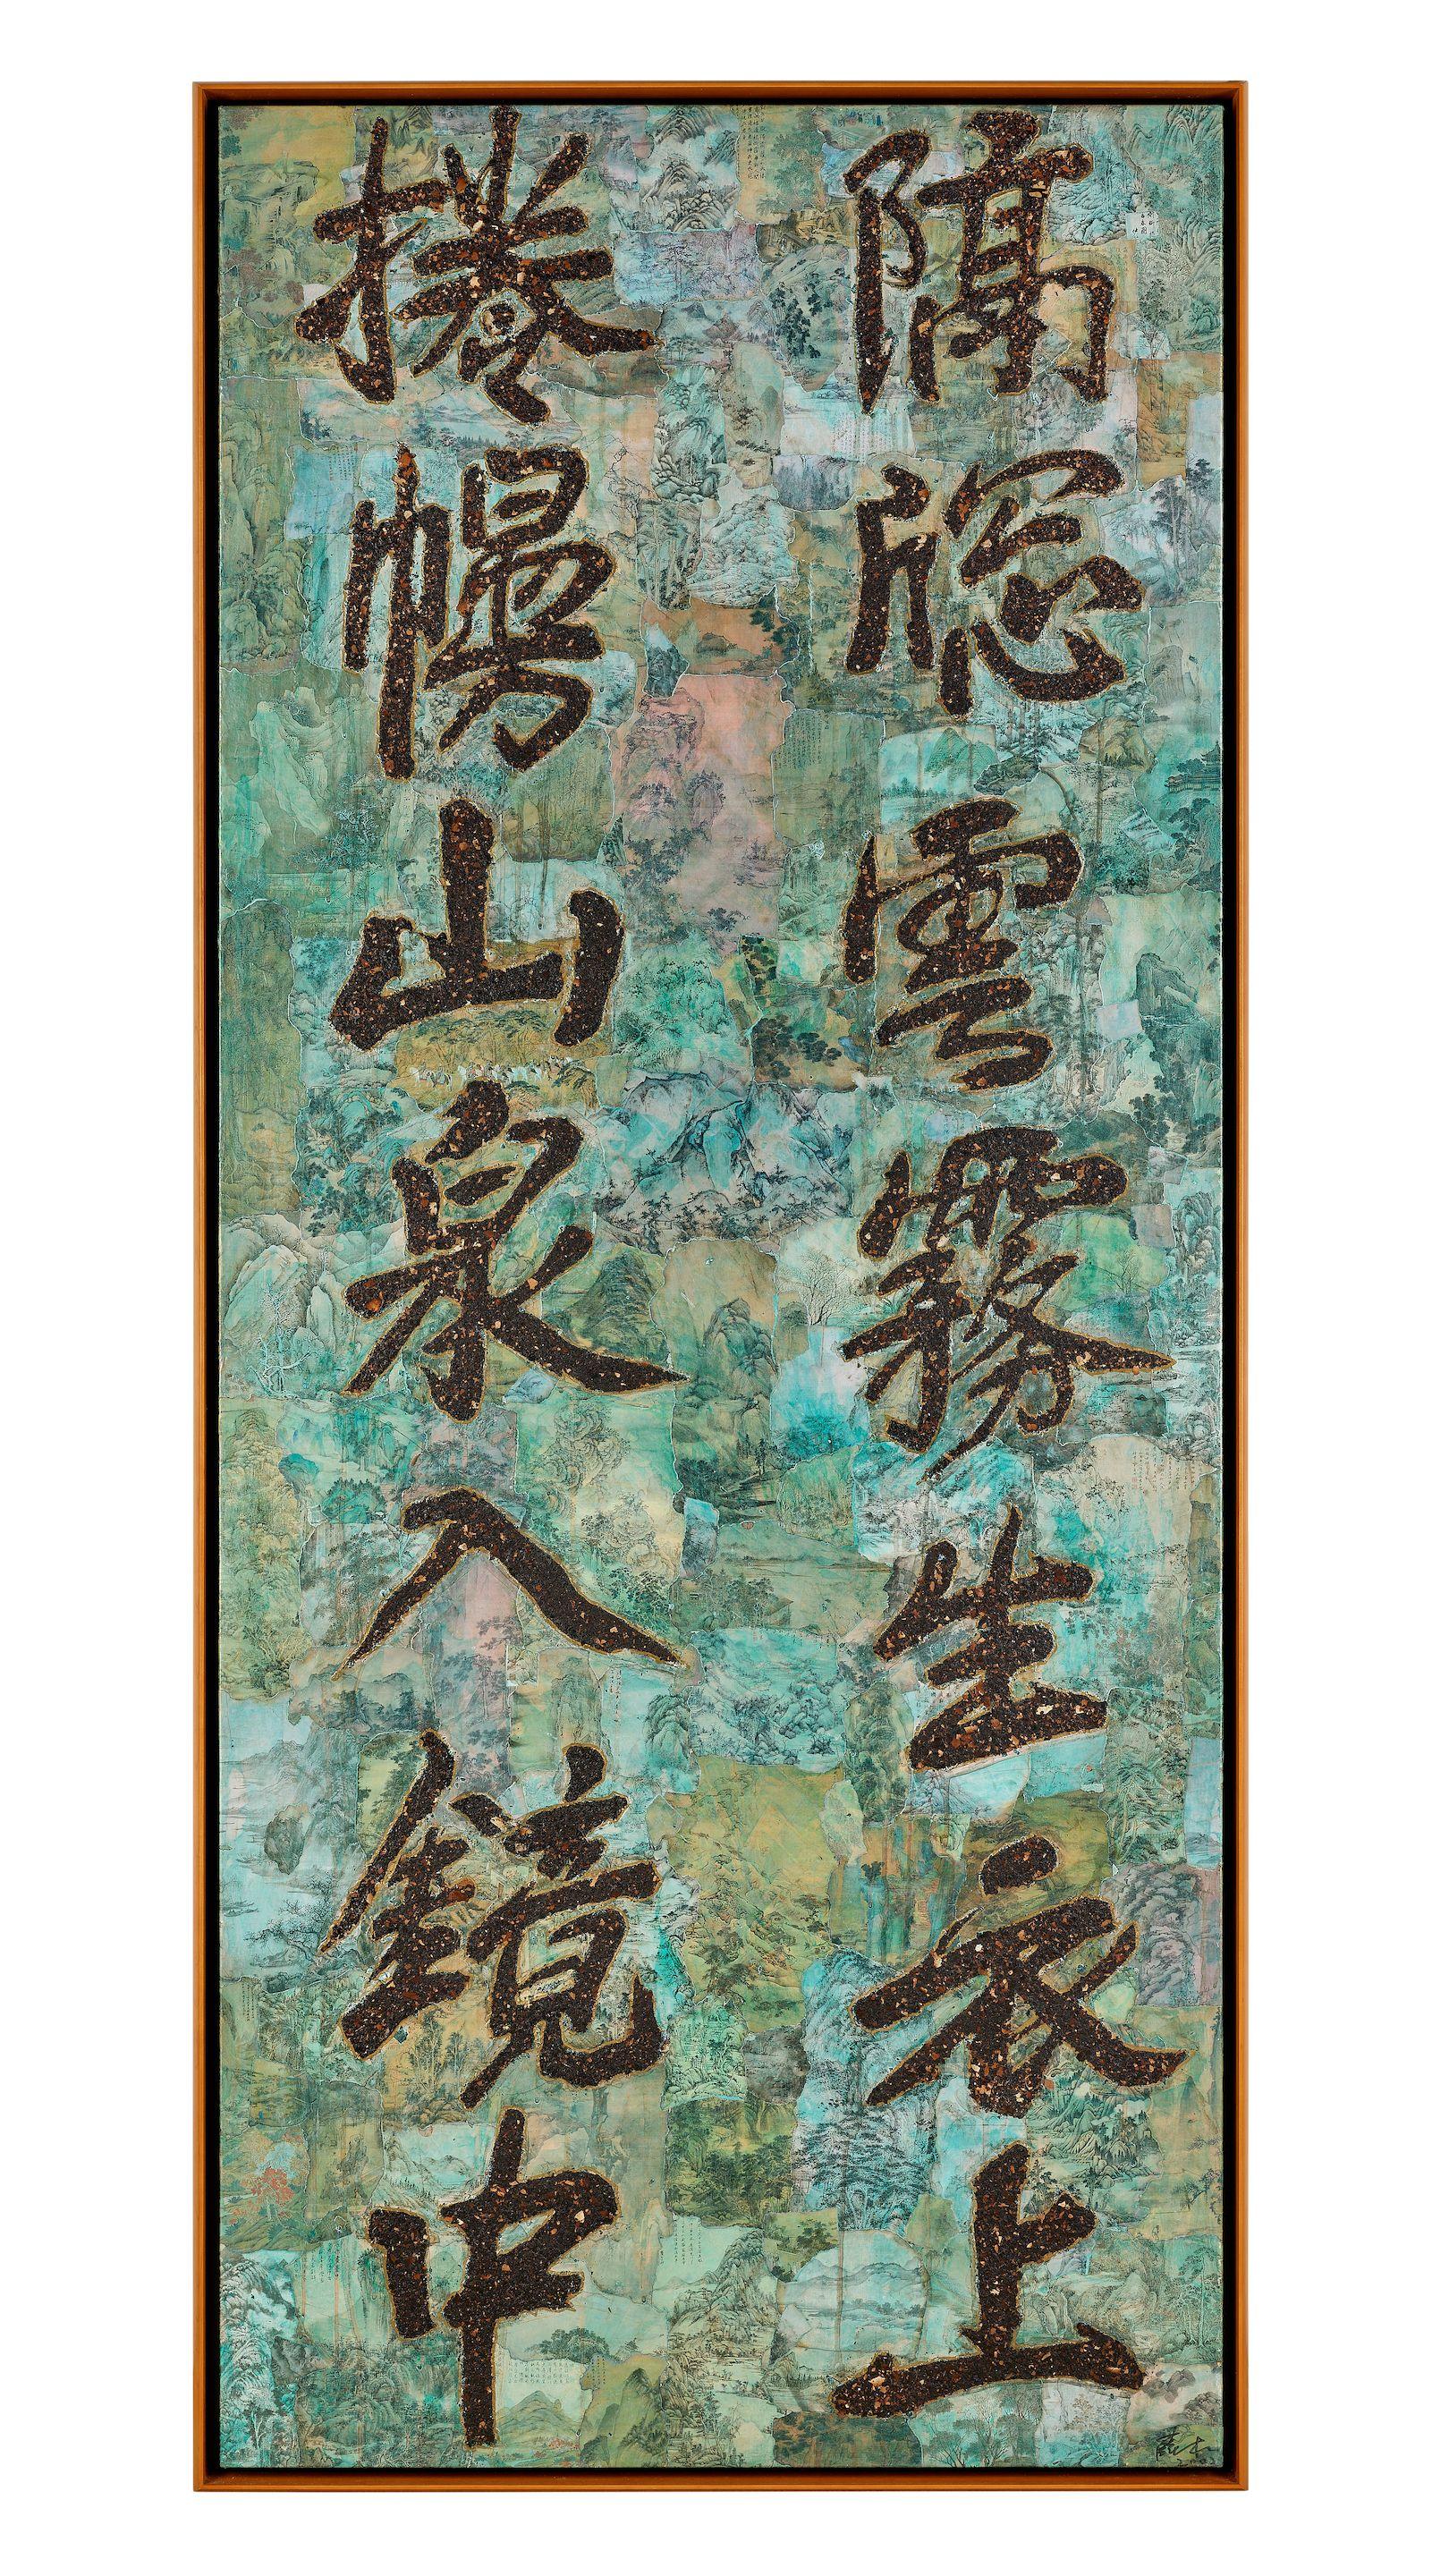 隔窓雲霧生衣上
捲幔山泉入鏡中